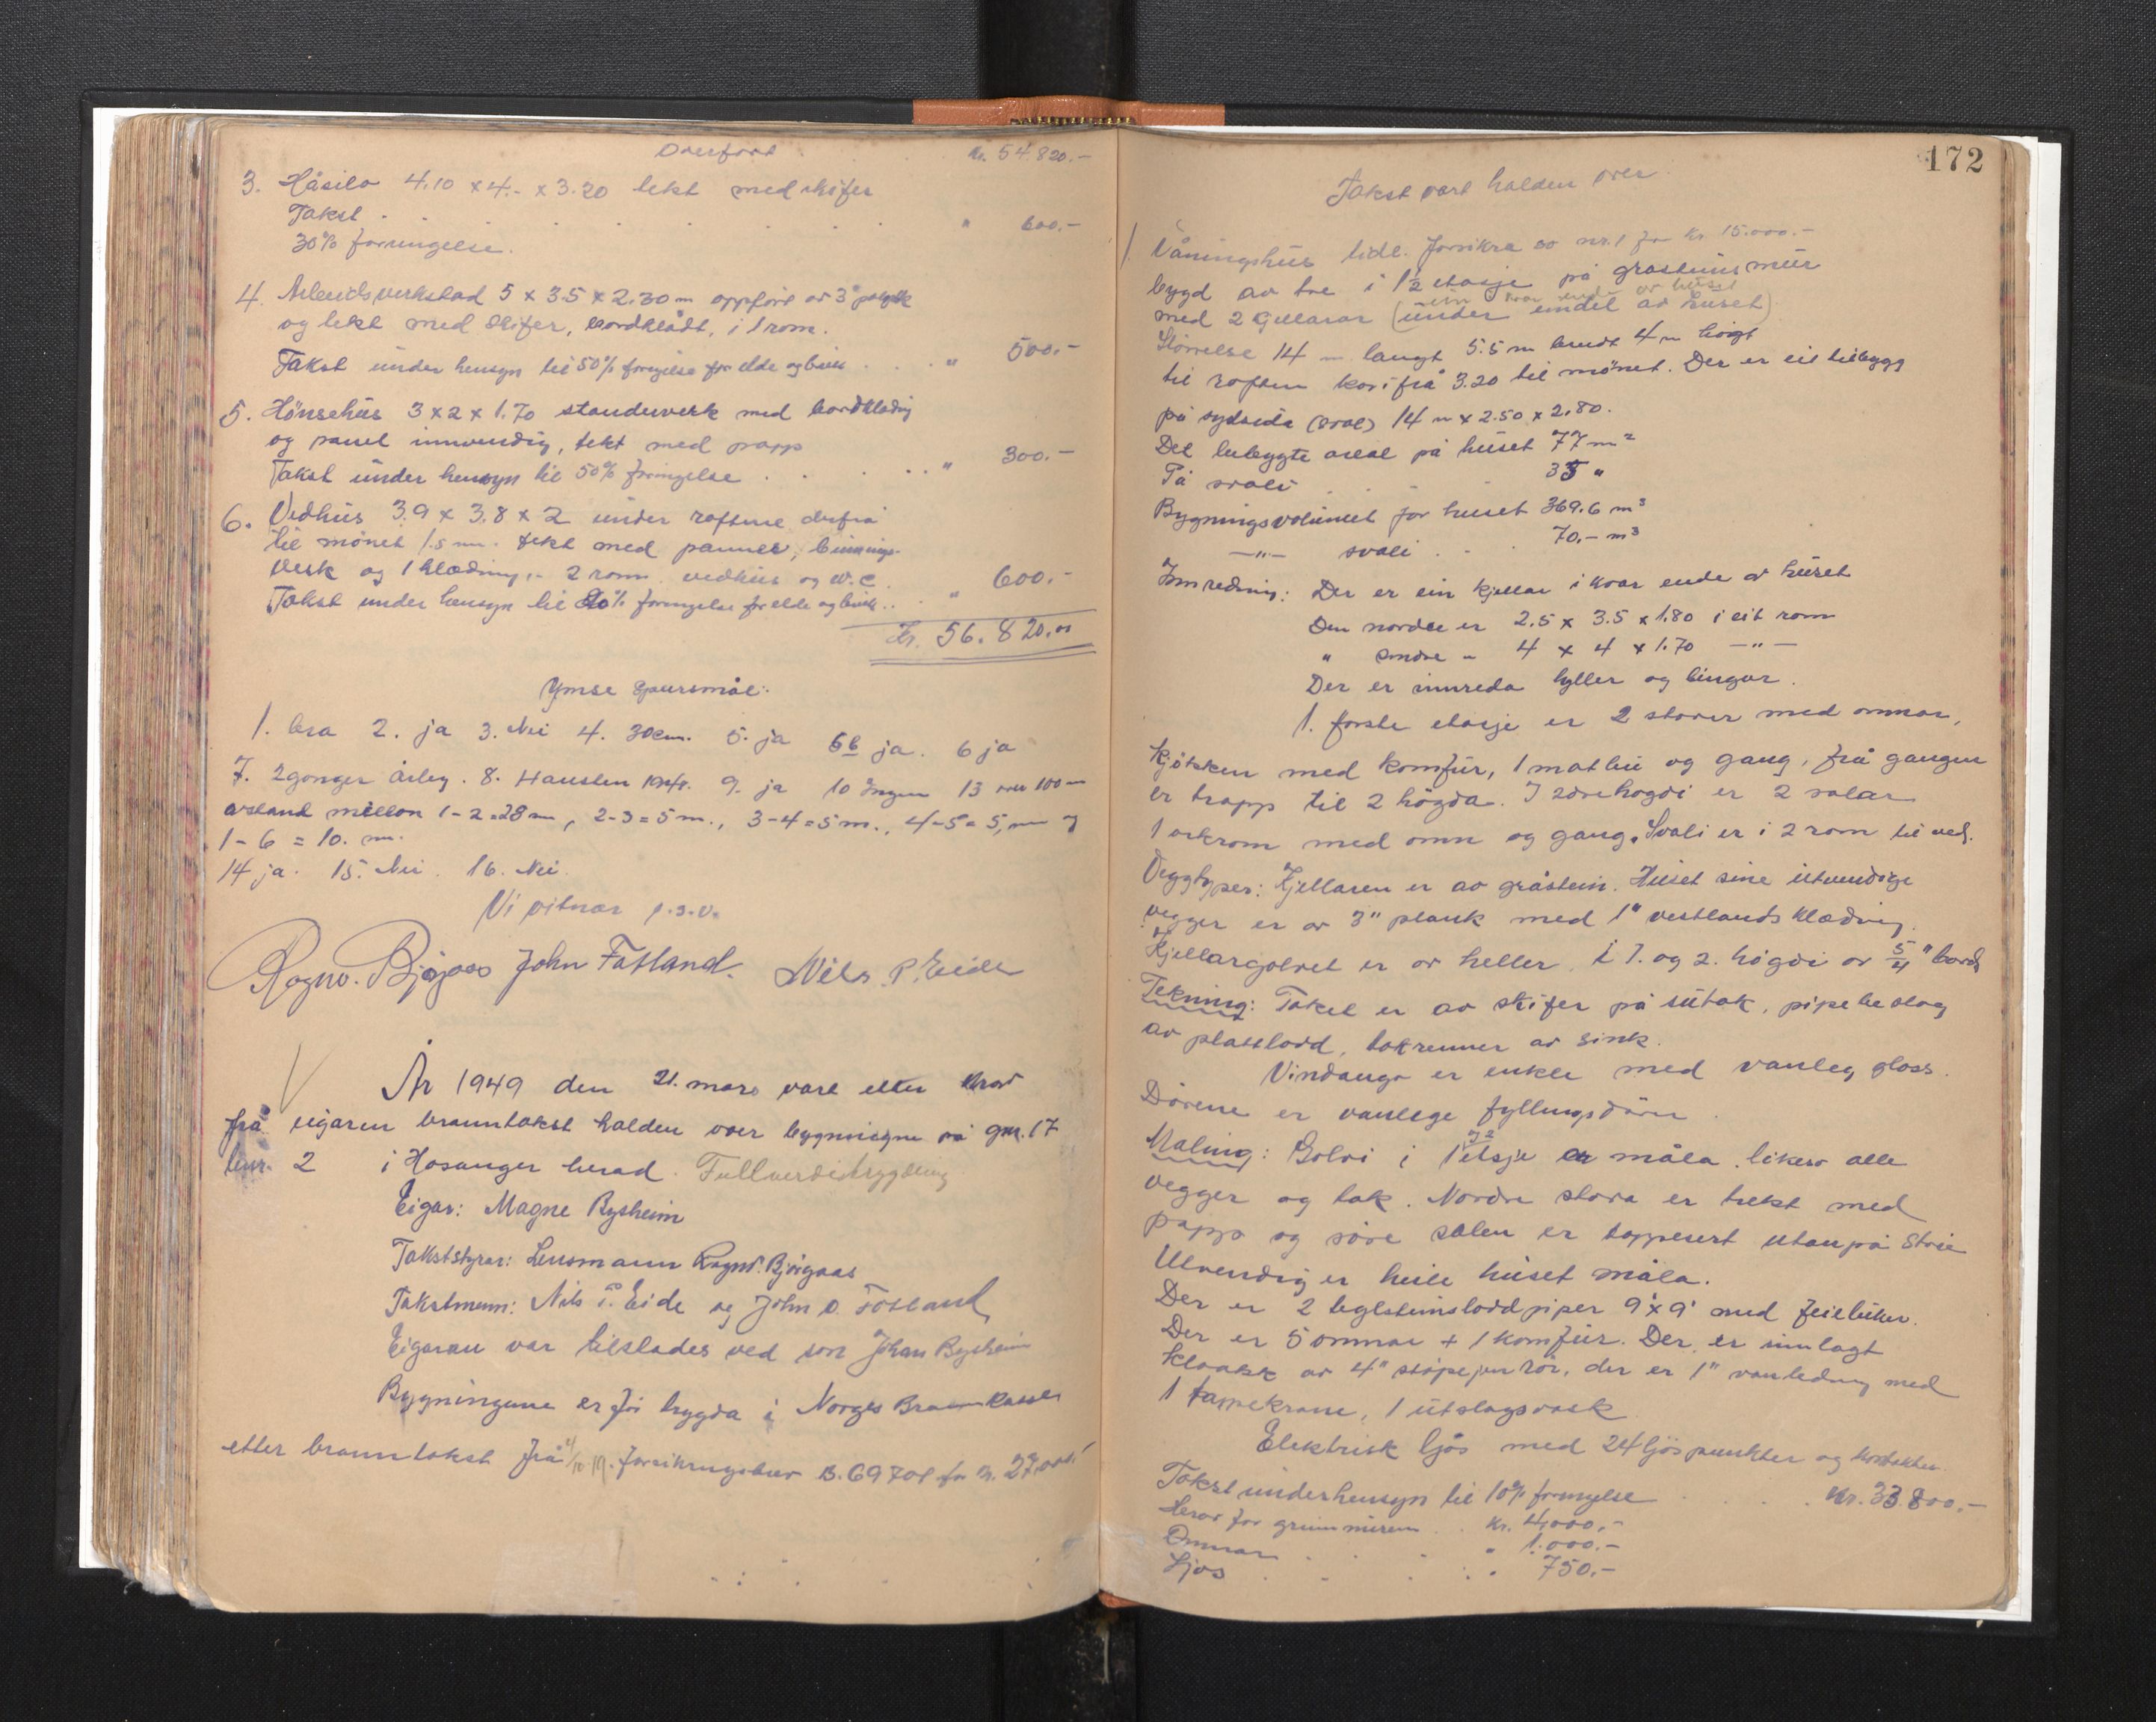 Overført . . . kr. 54.820.-
3. Håsilo 4.10 x 4.- x 3.20 tekt med skifer
Takst . . . . . . . " 600.-
30% forringelse.
4. Arbeidsverkstad 5 x 3.5 x 2.30 m oppført av 3"
og tekt med skifer, bordklædt, i 1 rom.
Takst under hensyn til 50% forringelse for elde og bruk . . . " 500.-
5. Hönsehus 3 x 2 x 1.70 standerverk med bordklædnig
og panel innvendig, tekt med papp
Takst under hensyn til 50% forringelse . . . . . " 300.-
6. Vedhus 3.9 x 3.8 x 2 under raftene derfra
til mønet 1.5 m. tekt med panner, binnings-
verk og 1 klædning,- 2 rom. vedhus og w.c.
Takst under hensyn til % forringelse for elde og bruk . . " 600.-
Kr. 56.820.00
Ymse spursmål:
1. bra 2. ja 3. Nei 4. 30cm. 5. ja 5b ja. 6 ja
7. 2 gonger årleg. 8. Hausten 9. ja 10 Ingen 13 over 100 m
avstand millon 1-2=28 m, 2-3=5 m., 3-4=5 m., 4-5=5, m og
1-6 = 10. m.
14 ja. 15. Nei. 16. Nei.
Vi vitnar s.s.v.
Ragnv. Bjørgaas John Fotland. Nils P. Eide
År 1949 den 21. mars vart etter krav
frå eigaren branntakst halden over bygningane på gnr. 17
bnr. 2 i Hosanger herad. Fullverditrygding
Eigar: Magne Rysheim
Takststyrar: Lensmann Ragnv. Bjørgaas
Takstmenn: Nils P. Eide og John O. Fotland
Eigaren var tilstades ved son Johan Rysheim
Bygningane er før trygda i Norges Brannkasse
etter branntakst frå forsikringsbrev B. 69701 for kr. 27.000.-
172
Takst vart halden over
1. Våningshus tidl. forsikra so nr. 1 for kr. 15.000.-
bygd av tre i 1½ etasje på gråsteinsmur
ein kvar ende av huset
med 2 Gjellarar (under eindel av huset)
Størrelse 14 m langt 5.5 m breidt 4 m høgt
til raftene korifrå 3.20 til mønet. Der er eit tilbygg
på sydsida (sval) 14 m x 2.50 x 2.80.
Det bebygte areal på huset 77 m²
På svali . . . 35 "
Bygningsvolumet for huset 369.6 m³
—"— svali . . . 70.- m³
Innredning: Der er ein kjellar i kvar ende av huset
Den nordre er 2.5 x 3.5 x 1.80 i eit rom
" søndre " 4 x 4 x 1.70 —"—
Der er innreda hyller og bingar.
1. første etasje er 2 stover med omnar,
kjøkken med komfür, 1 matbu og gang, frå gangen
er trapp til 2 högda. I 2dre hogdi er 2 salar
1 arkrom med omn og gang. Svali er i 2 rom til ved.
Veggtyper: Kjellaren er av gråstein. Huset sine utvendige
vegger er av 3" plank med 1" vestlandsklædning.
Kjellargolvet er av heller. i 1. og 2. högdi av 5/4" bord
Tekning: Taket er av skifer på sutak, pipebeslag
av plattlodd, takrenner av sink.
Vindauga er enkle med vanleg glass.
Dørene er vanlege fyllingsdører.
Maling: Golvi i 1 & 2 etasje er måla. likeso alle
vegger og tak. Nordre stova er trekt med
papp og søre salen er tappesert utanpå strie
Utvendig er heile huset måla.
Der er 2 teglsteinsloddpiper 9" x 9" med feieluker.
Der er 5 omnar + 1 komfür. Der er innlagt
kloakk av 4" støpejernrör, der er 1" vanledning med
1 tappekrane, 1 utslagsvask
Elektrisk ljös med 24 ljöspunkter og kontakter.
Takst under hensyn til 10% forringelse . . . . kr. 33.800.-
Herav for grunnmuren . . kr. 4.000.-
Omnar . . . . " 1.000.-
Ljos . . . . " 750.-